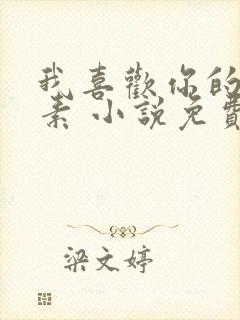 我喜歡你的
素 小說免費
梁文婷